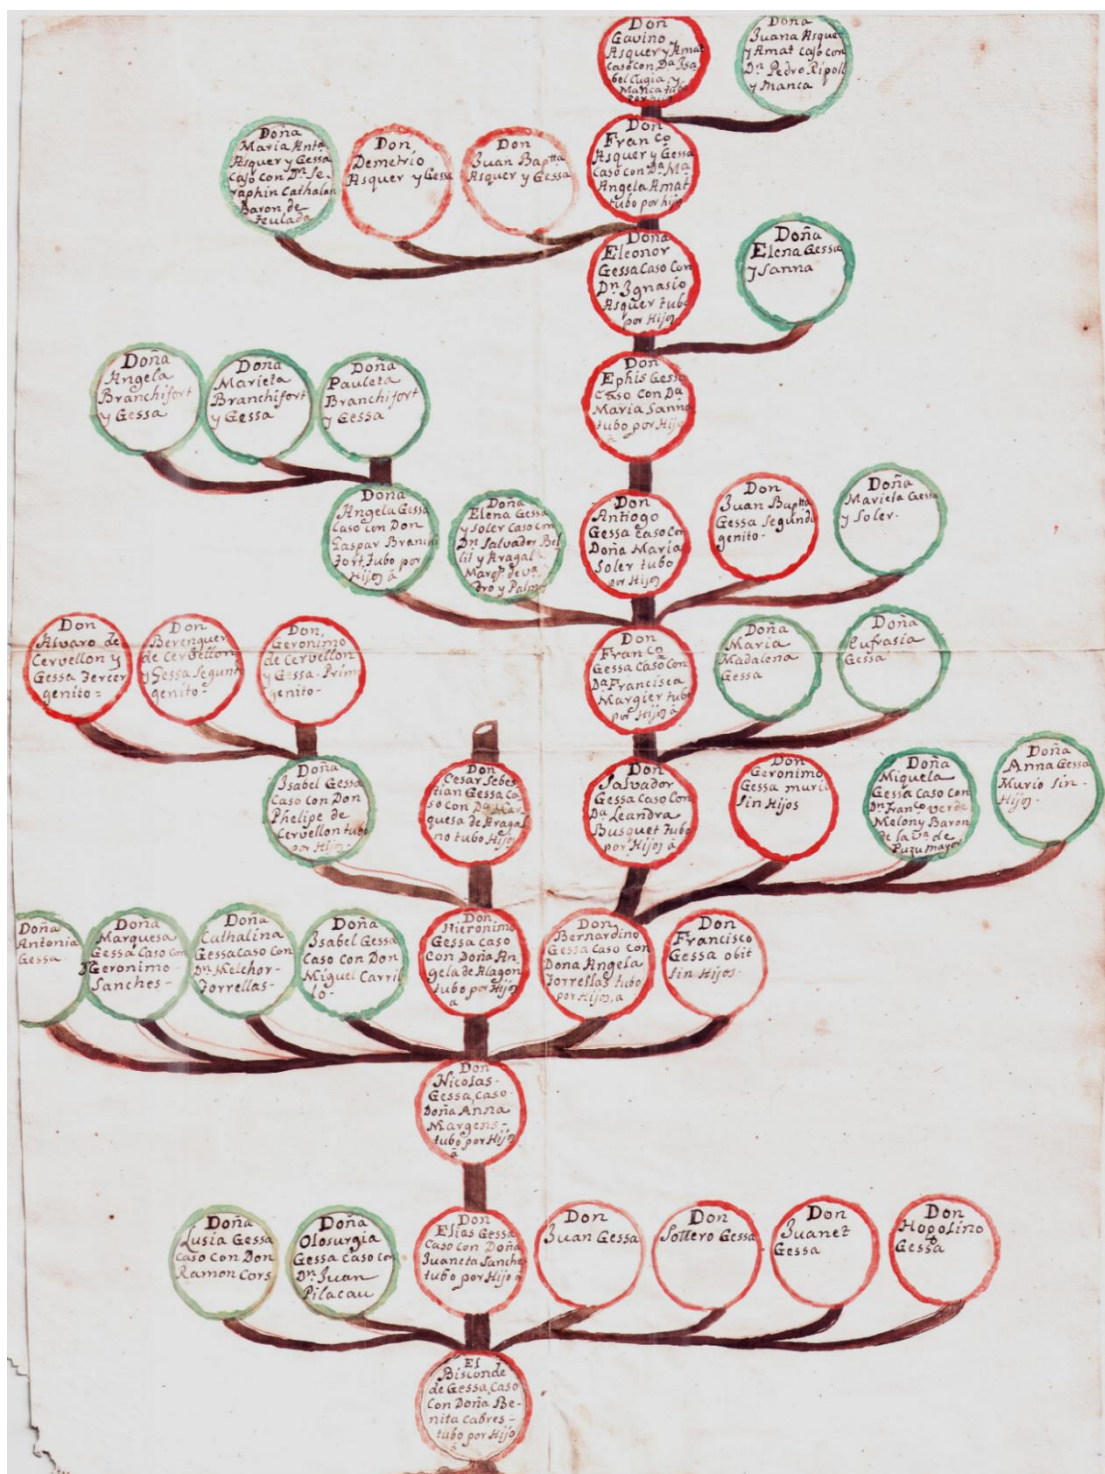 Don
Gavino
Asquer y Amat
Caso con Da Isa
bel Cugia, y
Manca tubo
Doña
Juana Asquer
y Amat Caso con
Dn Pedro Ripoll
y Manca
Doña
Maria Anta
Asquer y Gessa
Caso con Dn Se-
raphin Cathalan
Baron de
Teulada
Don
Demetrio
Asquer y Gessa
Don
Juan Baptta
Asquer y Gessa
Don
Franco
Asquer y Gessa
Caso con Da Ma
Angela Amat
tubo por hijo
Doña
Eleonor
Gessa Caso Con
Dn Ignasio
Asquer tubo
por Hijos
Doña
Elena Gessa
y Sanna
Doña
Angela
Branchifort
y Gessa
Doña
Marieta
Branchifort
y Gessa
Doña
Pauleta
Branchifort
y Gessa
Don
Ephis Gessa
Caso con Da
Maria Sanna
tubo por Hijo
á
Doña
Angela Gessa
Caso con Don
Gaspar Branchi
fort, Tubo por
Hijos á
Doña
Elena Gessa
y Soler Caso con
Dn Salvador Bel
lit y Aragal
Marqs de Va
dro y Palmas
Don
Antiogo
Gessa Caso Con
Doña Maria
Soler tubo
por Hijos
Don
Juan Baptta
Gessa Segundo
genito.
Doña
Marieta Gessa
y Soler.
Don
Alvaro de
Cervellon y
Gessa Tercer
genito =
Don
Berenguer
de Cervellon
y Gessa Segun
genito =
Don,
Geronimo
de Cervellon
y Gessa. Prim
genito -
Don
Franco
Gessa Caso Con
Da Francisca
Margier tubo
por Hijos á
Doña
Maria
Madalena
Gessa
Doña
Eufrasia
Gessa
Doña
Isabel Gessa
Caso con Don
Phelipe de
Cervellon tubo
por Hijos -
Don
Cesar Sebes
tian Gessa Ca
so con Da Mar
quesa de Aragal
no tubo Hijos
Don
Salvador
Gessa Caso Con
Da Leandra
Busquet tubo
por Hijos á
Don
Geronimo
Gessa murio
Sin Hijos
Doña
Miquela
Gessa Caso con
Dn Franco Verde
Melon y Baron
de la Va de
Puzumayor
Doña
Anna Gessa
Murio Sin-
Hijos -
Doña
Antonia
Gessa
Doña
Marquesa
Gessa Caso Con
Geronimo -
Sanches -
Doña
Cathalina
Gessa Caso con
Dn Melchor -
Torrellas -
Doña
Isabel Gessa
Caso con Don
Miguel Carril
lo -
Don,
Hieronimo
Gessa Caso
Con Doña An
gela de Alagon
tubo por Hijos
á
Don
Bernardino
Gessa Caso con
Dona Angela
Torrellas tubo
por Hijos, á
Don
Francisco
Gessa obit
Sin Hijos -
Don
Nicolas -
Gessa, Caso
Doña Anna
Margens -
tubo por Hijos
á
Doña
Lusia Gessa
Caso con Don
Ramon Cors
Doña
Olosurgia
Gessa Caso con
Dn Juan
Pilacau
Don
Elias Gessa
Caso con Doña
Juaneta Sanche
tubo por Hijo á
Don
Juan Gessa
Don
Sottero Gessa
Don
Juanet
Gessa
Don
Hogolino
Gessa
El
Bisconde
de Gessa, Caso
Con Doña Be-
nita Cabres -
tubo por Hijo
á